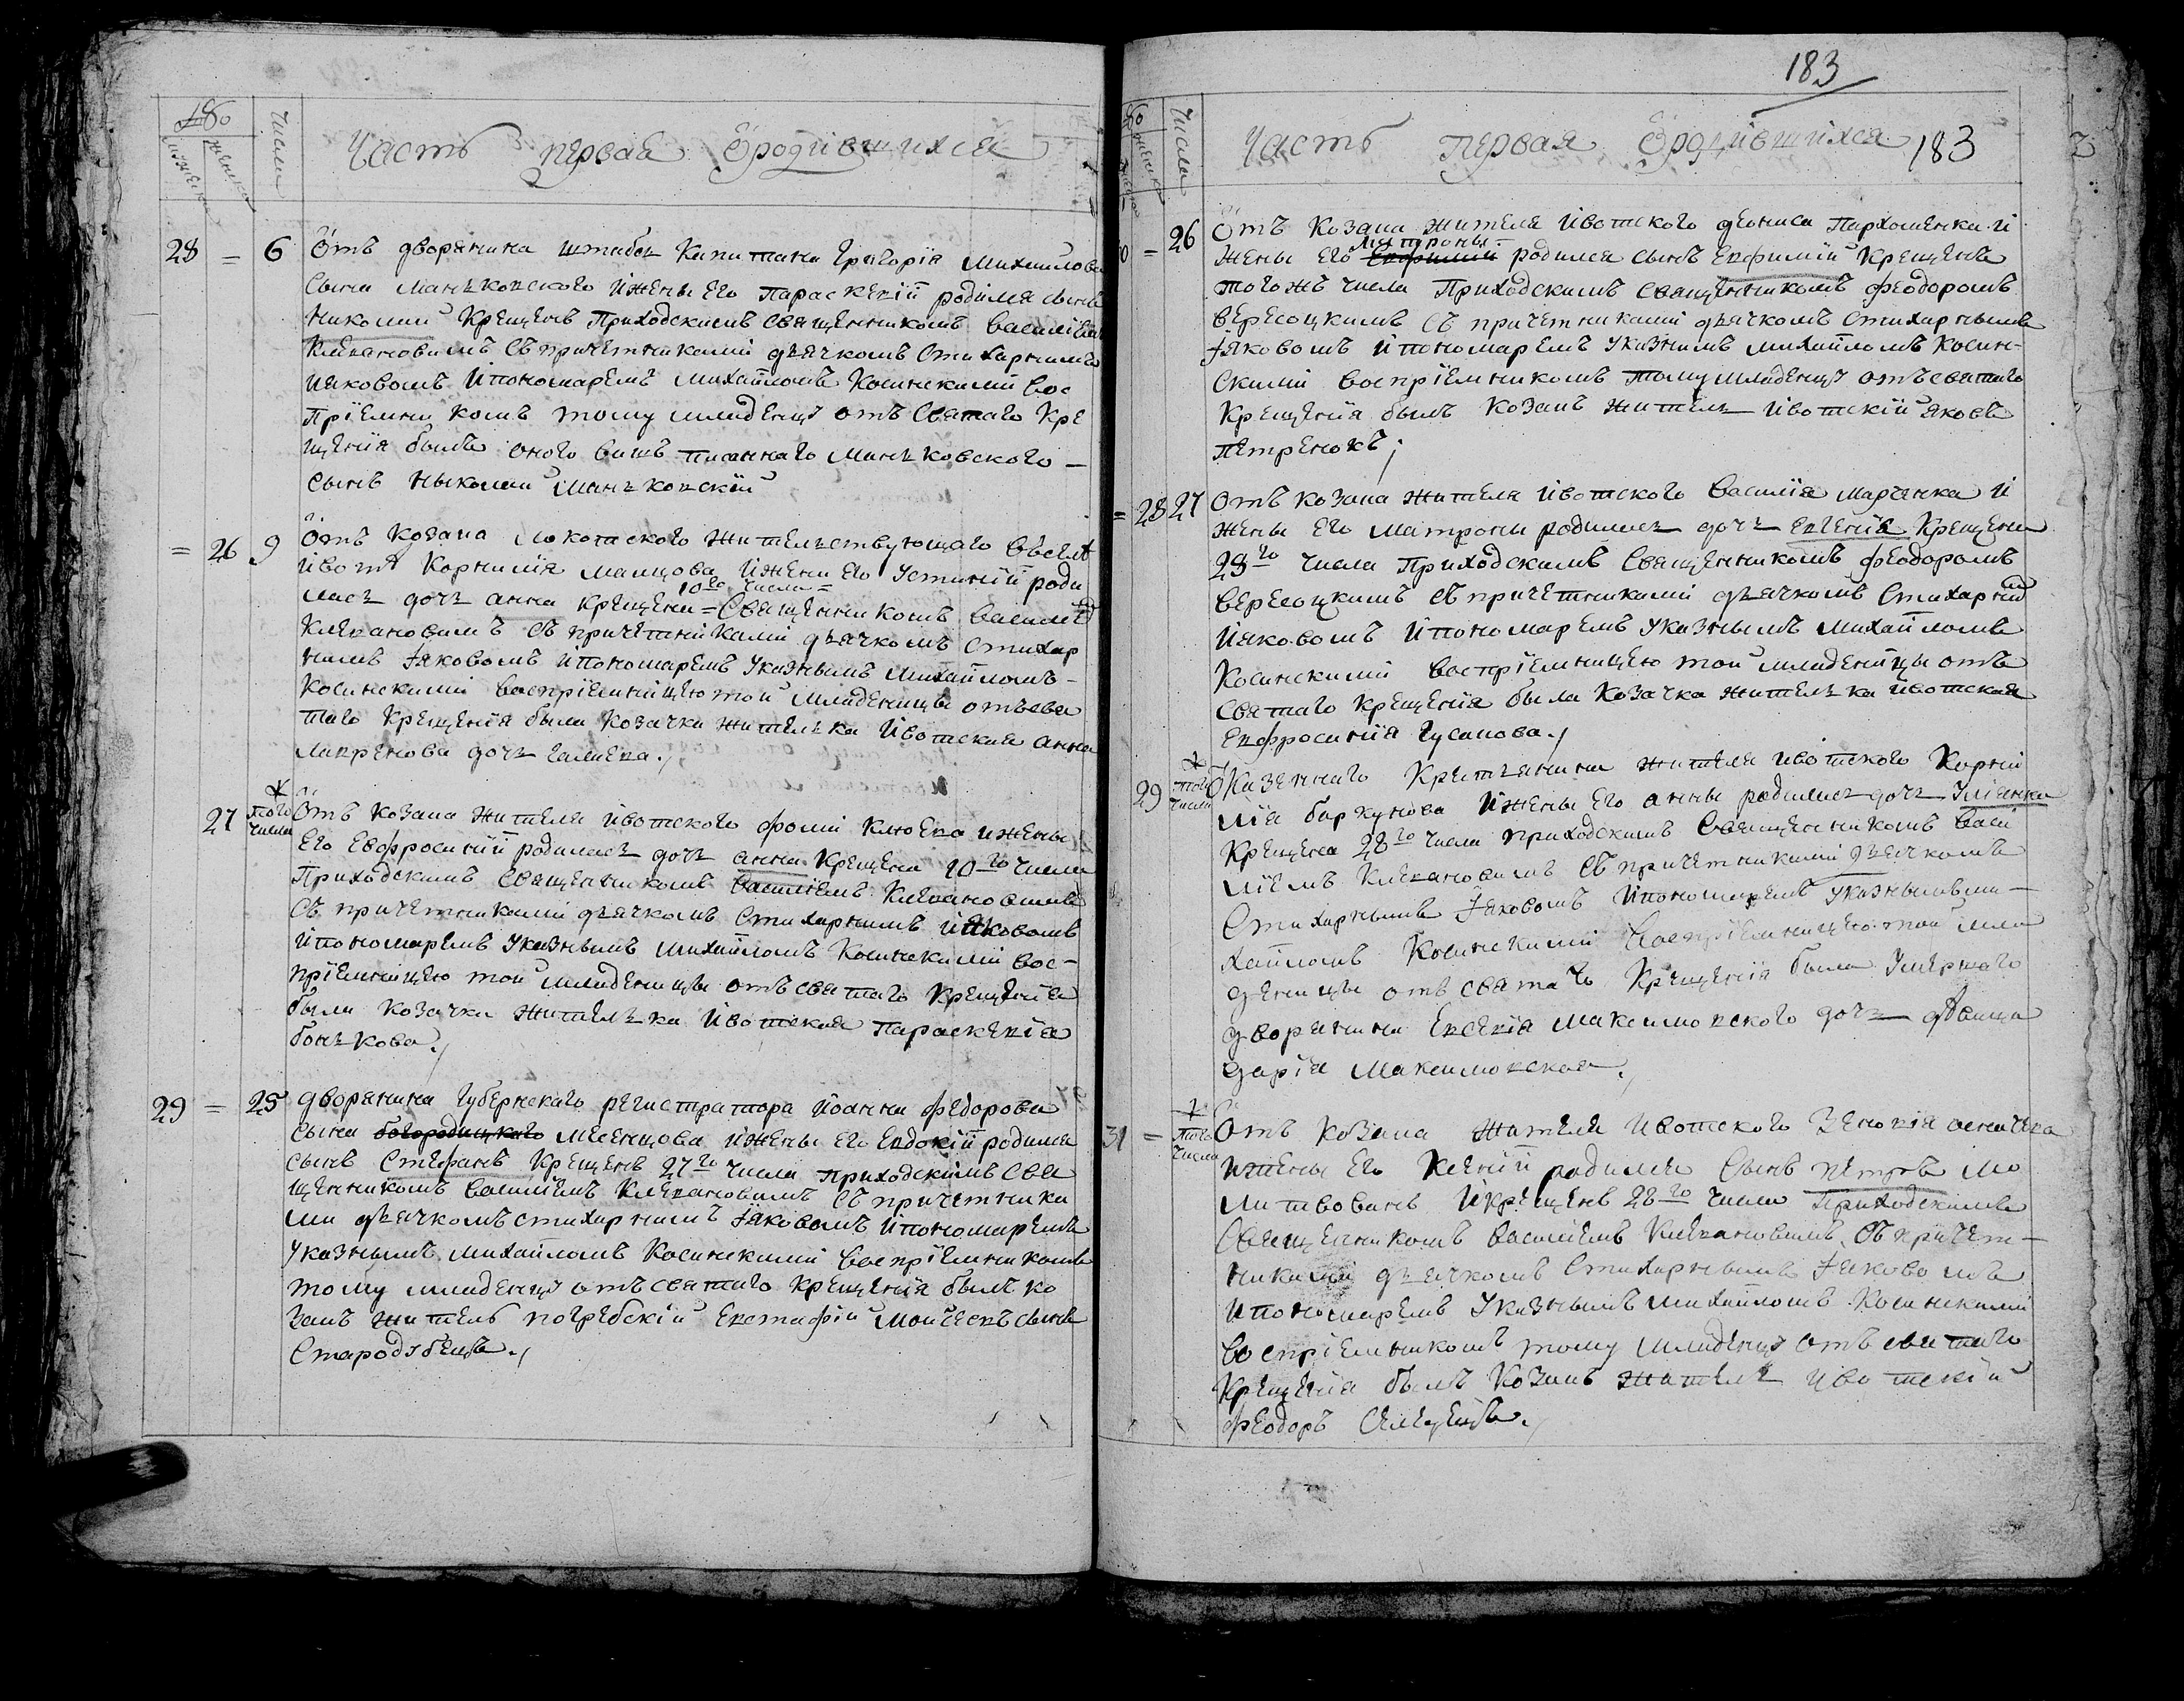 Часть первая ѡ родившихся
Числа
28 = 6 Ѿтъ дворянина штабсъ капитана Григорія Михайлова
сына Маньковского и жены его Параскевіи родился сынъ
Николай крещенъ приходскимъ священникомъ Василіемъ
Клевановимъ съ причетниками дьячкомъ стихарнимъ
Иаковомъ и пономаремъ Михайломъ Косинскимі вос
пріемникомъ тому младенцу отъ святаго кре
щенія былъ оного вишъ писанного Маньковского —
сынъ Николай Маньковскій
= 26 9 Ѿтъ козака жительствующаго въ селѣ
Ивотѣ Корнилія Мамцова и жени его Устиніи роди
лась дочь Анна крещена = 10го числа = священникомъ Василіемъ
Клевановимъ съ причетниками дьячкомъ стихар
нимъ Іаковомъ и пономаремъ указнымъ Михайломъ
Косинскимі воспріемницею той младеници отъ свя
таго крещенія была козачка жителька Ивотская Анна
дочь
27 того числа Ѿтъ козака жителя Ивотского Фомы Клюева и жены
его Евфросиніи родилась дочь Анна крещена 10го числа
приходскимъ священникомъ Василіемъ Клевановимъ
съ причетниками дьячкомъ стихарнимъ Иаковомъ
и пономаремъ указнымъ Михайломъ Косинскимі вос-
пріемницею той младеници отъ святаго крещенія
была козачка жителька Ивотская Параскевія
Бонькова
29 = 25 дворянина губернского регистратора Иоанна Федорова
сына богородицкаго и жены его Евдокіи родился
сынъ Стефанъ крещенъ 27го числа приходскимъ свя
щенникомъ Василіемъ Клевановимъ съ причетника
ми дьячкомъ стихарнимъ Іаковомъ и пономаремъ
указнымъ Михайломъ Косинскимі воспріемникомъ
тому младенцу отъ святаго крещенія былъ ко
закъ житель погребскій Евстафій Моисеевъ сынъ
Стародубецъ
183
Числа
Часть первая ѡ родившихся 183
= 26 Ѿтъ козака жителя Ивотского Дениса Пархоменка и
жены его Матроны родился сынъ Евфимій крещенъ
того жъ числа приходскимъ священникомъ Феодоромъ
Вересоцкимъ съ причетниками дьячкомъ стихарнымъ
Іяковомъ и пономаремъ указнымъ Михайломъ Косин-
скимі воспріемникомъ тому младенцу отъ святаго
крещенія былъ козакъ житель Ивотскій Яковъ
Петренокъ
= 28 27 Отъ козака жителя Ивотского Василія Марченка и
жены его Матроны родилась дочь Евгенія крещена
28го числа приходскимъ священникомъ Феодоромъ
Вересоцкимъ съ причетниками дьячкомъ стихарнимъ
Иаковомъ и пономаремъ указнымъ Михайломъ
Косинскимі воспріемницею той младеницы отъ
святаго крещенія была козачка жителька Ивотская
Евфросинія Гусакова
29 того числа Ѿ казенного крестьянина жителя Ивотского Корни
лія Баркунова и жены его Анны родилась дочь Уліянна
крещена 28го числа приходскимъ священникомъ Васи
ліемъ Клевановимъ съ причетниками дьячкомъ
стихарнымъ Іаковомъ и пономаремъ указнымъ Ми-
хайломъ Косинскимі воспріемницею той мла
деницы отъ святаго крещенія была умершаго
дворянина Евсевія Максимовского дочь дѣвица
Дарія Максимовская
31 = того числа Ѿтъ козака жителя Ивотского Зеновія
и жены его Ксеніи родился сынъ Петръ мо
литвованъ и крещенъ 28го числа приходскимъ
священникомъ Василіемъ Клевановимъ съ причет-
никами дьячкомъ стихарнымъ Іаковомъ
и пономаремъ указнымъ Михайломъ Косинскимі
воспріемникомъ тому младенцу отъ святаго
крещенія былъ козакъ житель Ивотскій
Феодоръ